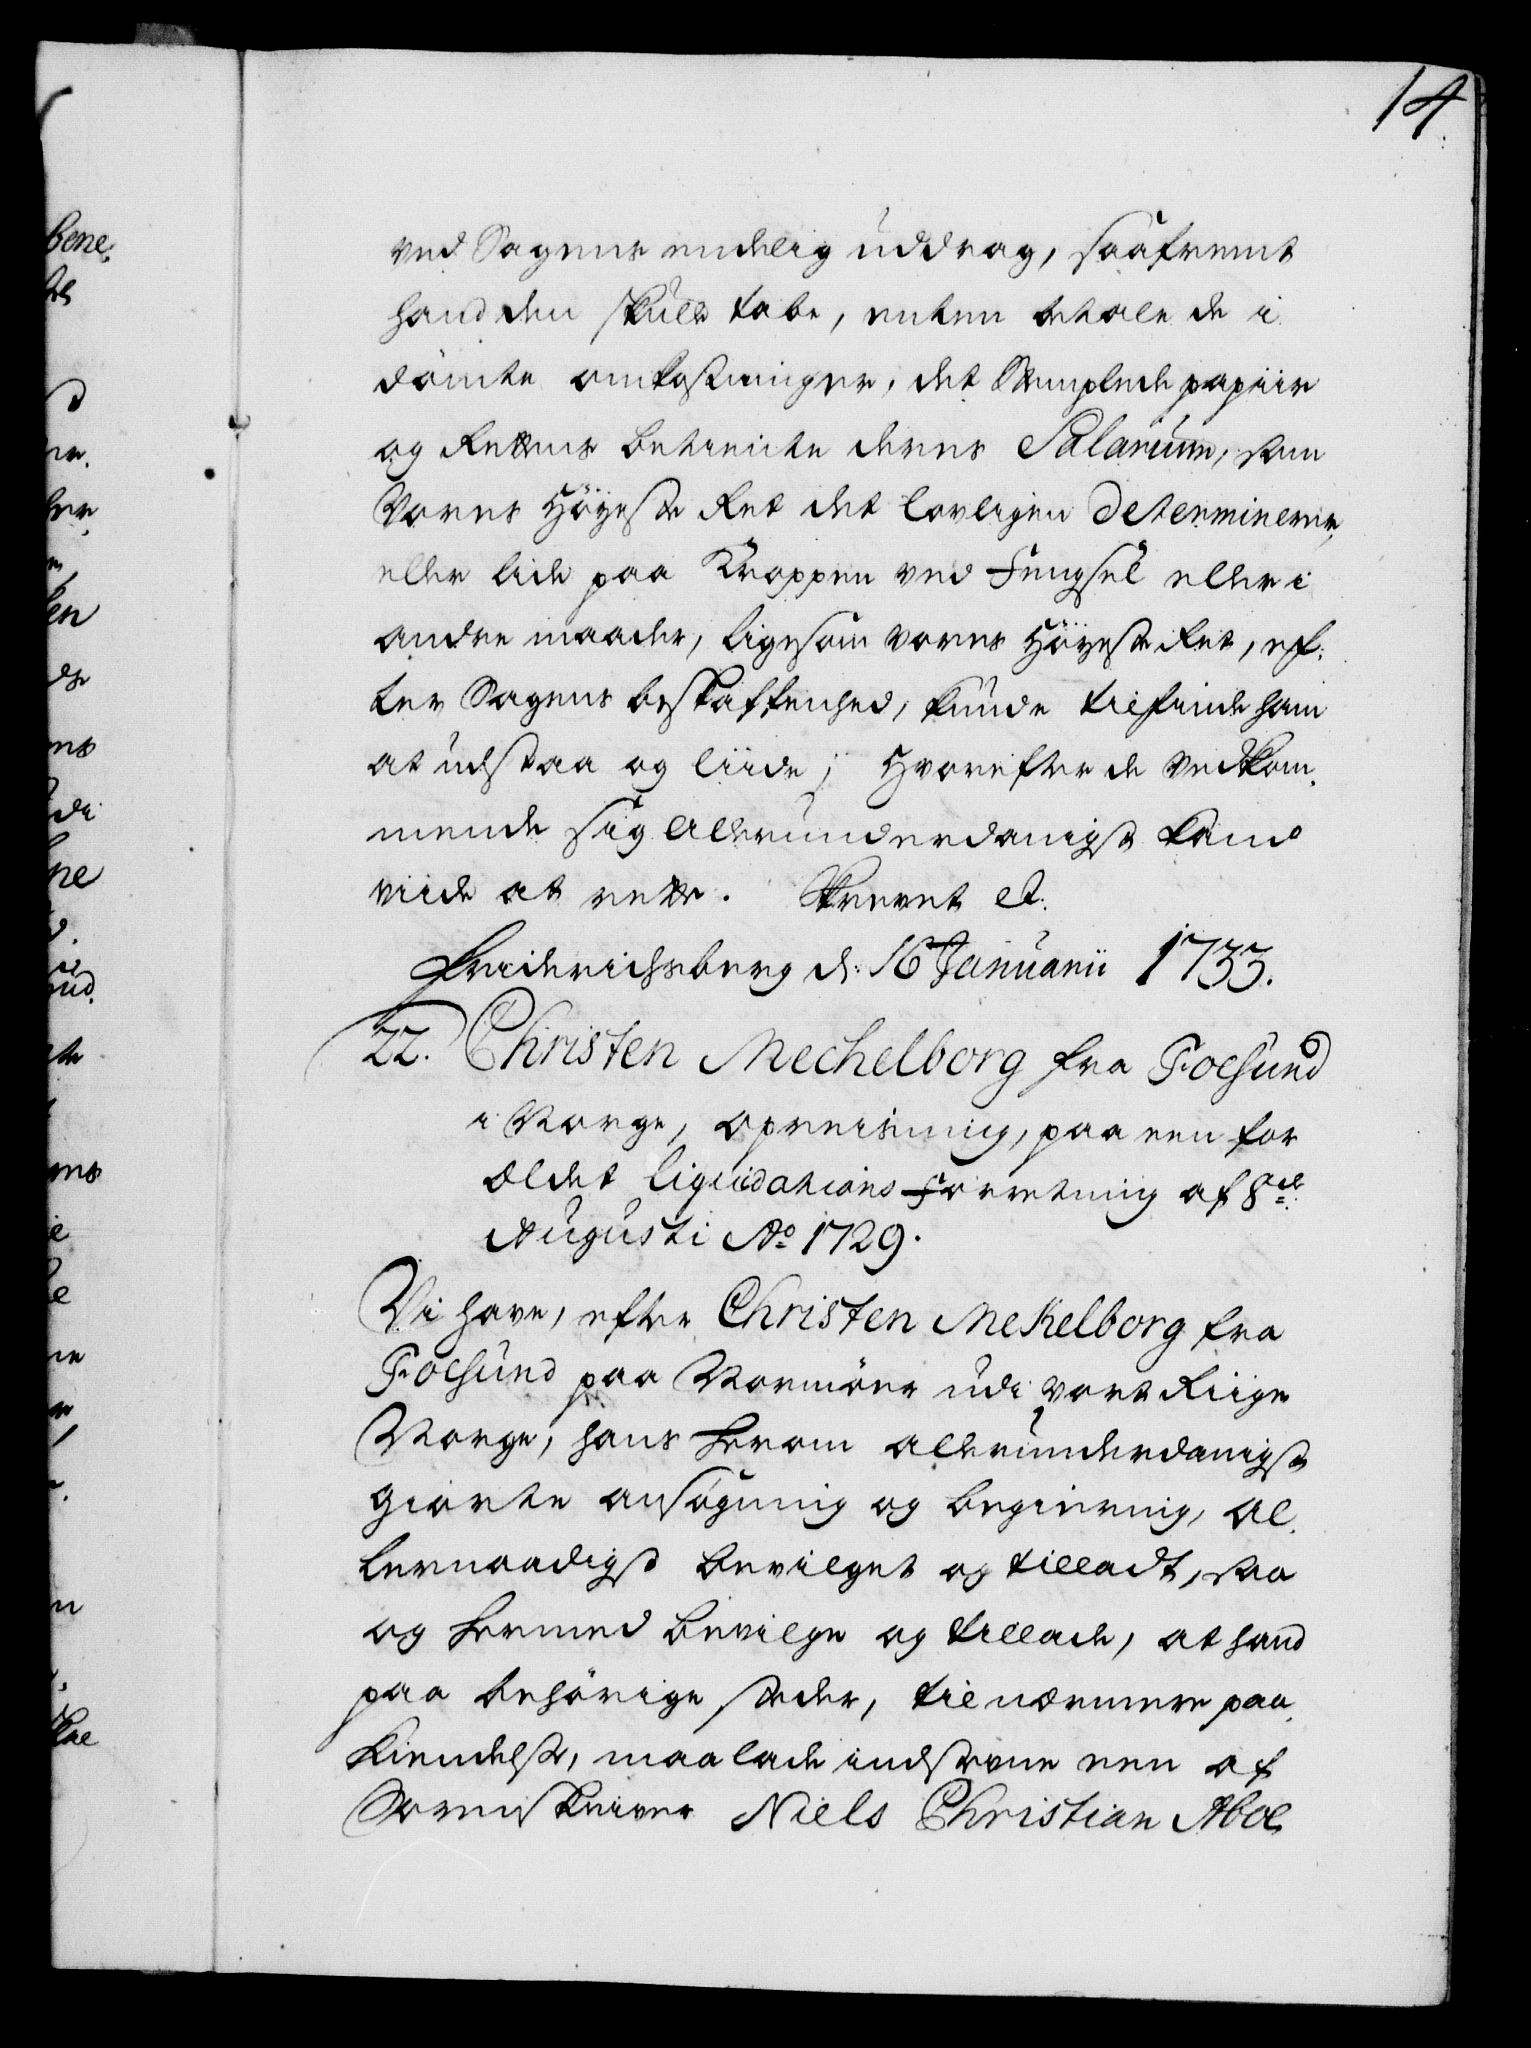 14.
ved Sagens endelig uddrag, saafremt
hand den skulle tabe, enten betale de i
dömte omkostninger, det Stemplede papiir
og Rettens betiente deres Salarium, som
Vores Höyeste Ret det lovligen determinerer,
eller lide paa Kroppen ved Fengsel eller i
andre maader, ligesom vores Höyeste Ret, ef:
ter Sagens beskaffenhed, kunde tilfinde ham
at udstaa og liide; Hvorefter de Vedkom¬
mende sig allerunderdanigst kand
viide at rette. Skrevet et:
Friderichsberg d: 16 Januarii 1733.
22. Christen Mechelborg fra Foesund
i Norge, opreisning, paa een for
ældet liquidations Forretning af 8de
Augusti Ao 1729.
Vi have, efter Christen Mekelborg fra
Foesund paa Normöer udi vort Riige
Norge, hans herom allerunderdanigst
giorte ansögning og begiering, al¬
lernaadigst bevilget og tilladt, saa
og hermed bevilge og tillade, at hand
paa behörige steder, til nærmere paa¬
kiendelse, maa lade indstevne een af
Sorenskriver Niels Christian Aboe